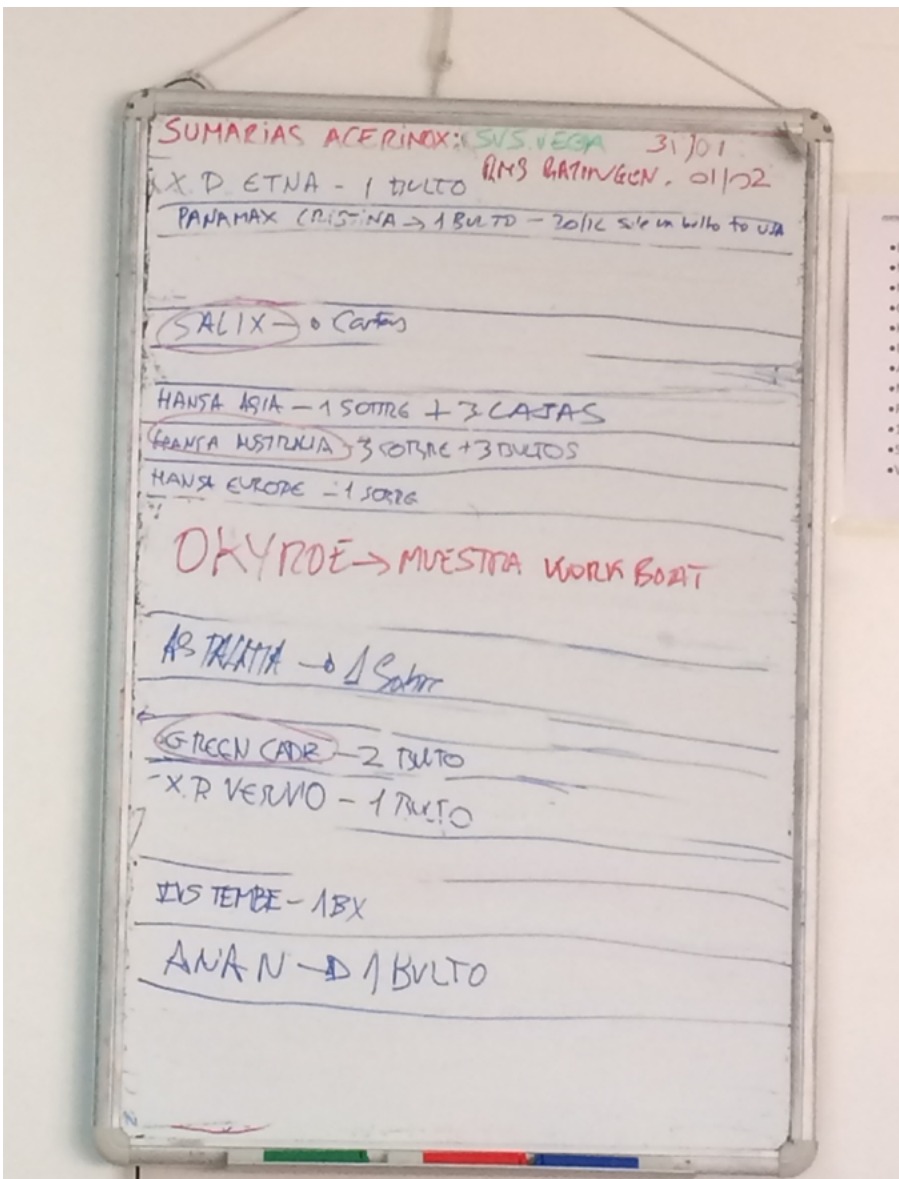 SUMARIAS ACERINOX: SVS VEGA 31/01
RMS RATINGEN. 01/02
X.P. ETNA - 1 BULTO
PANAMAX CRISTINA → 1 BULTO - 20/12 sale un bulto to USA
SALIX → Cartas
HANSA ASIA - 1 SOBRE + 3 CAJAS
HANSA AUSTRALIA 3 SOBRE + 3 BULTOS
HANSA EUROPE - 1 SOBRE
OKYROE → MUESTRA WORK BOAT
AS → 1 Sobre
GREEN CADIZ - 2 BULTO
X.P. VERVIO - 1 BULTO
IVS TEMBE - 1BX
ANAN → 1 BULTO